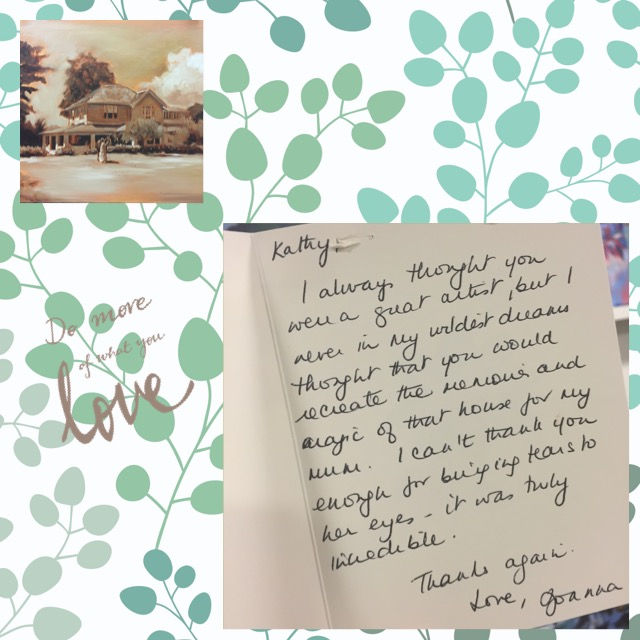 Do more
of what you
love
Kathy,
I always thought you
were a great artist, but I
never in my wildest dreams
thought that you would
recreate the memories and
magic of that house for my
mum. I can't thank you
enough for bringing tears to
her eyes - it was truly
incredible.
Thanks again.
Love, Joanna